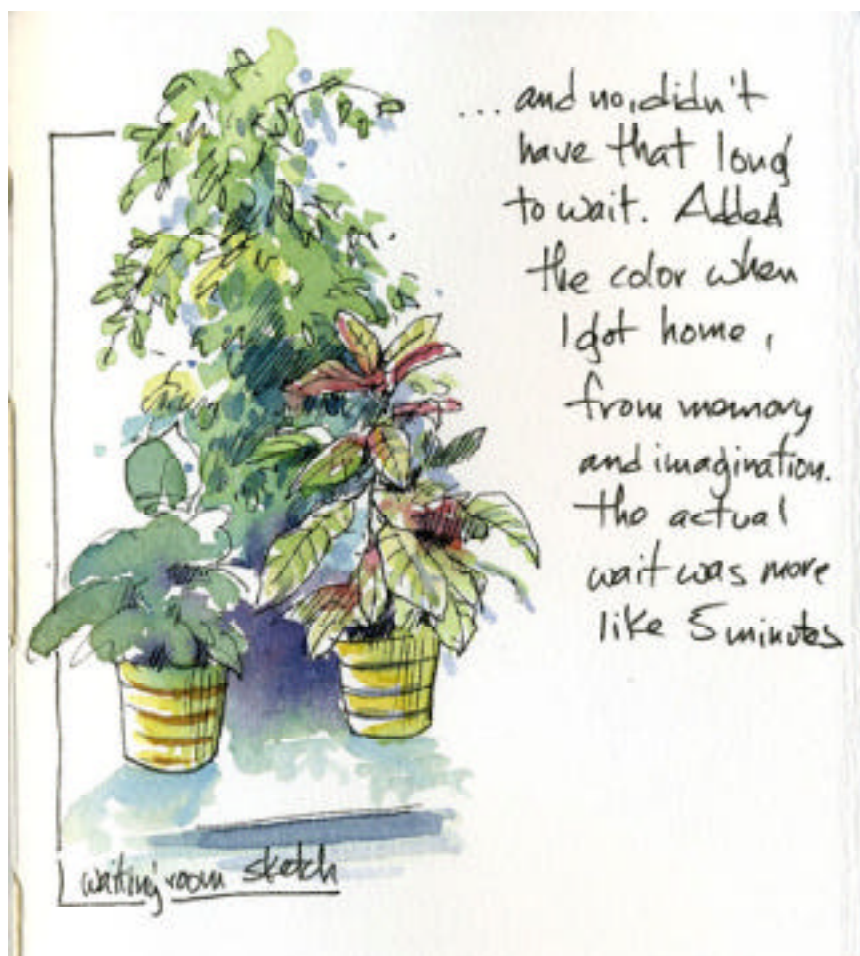 ... and no, didn't
have that long
to wait. Added
the color when
I got home,
from memory
and imagination.
the actual
wait was more
like 5 minutes
waiting room sketch